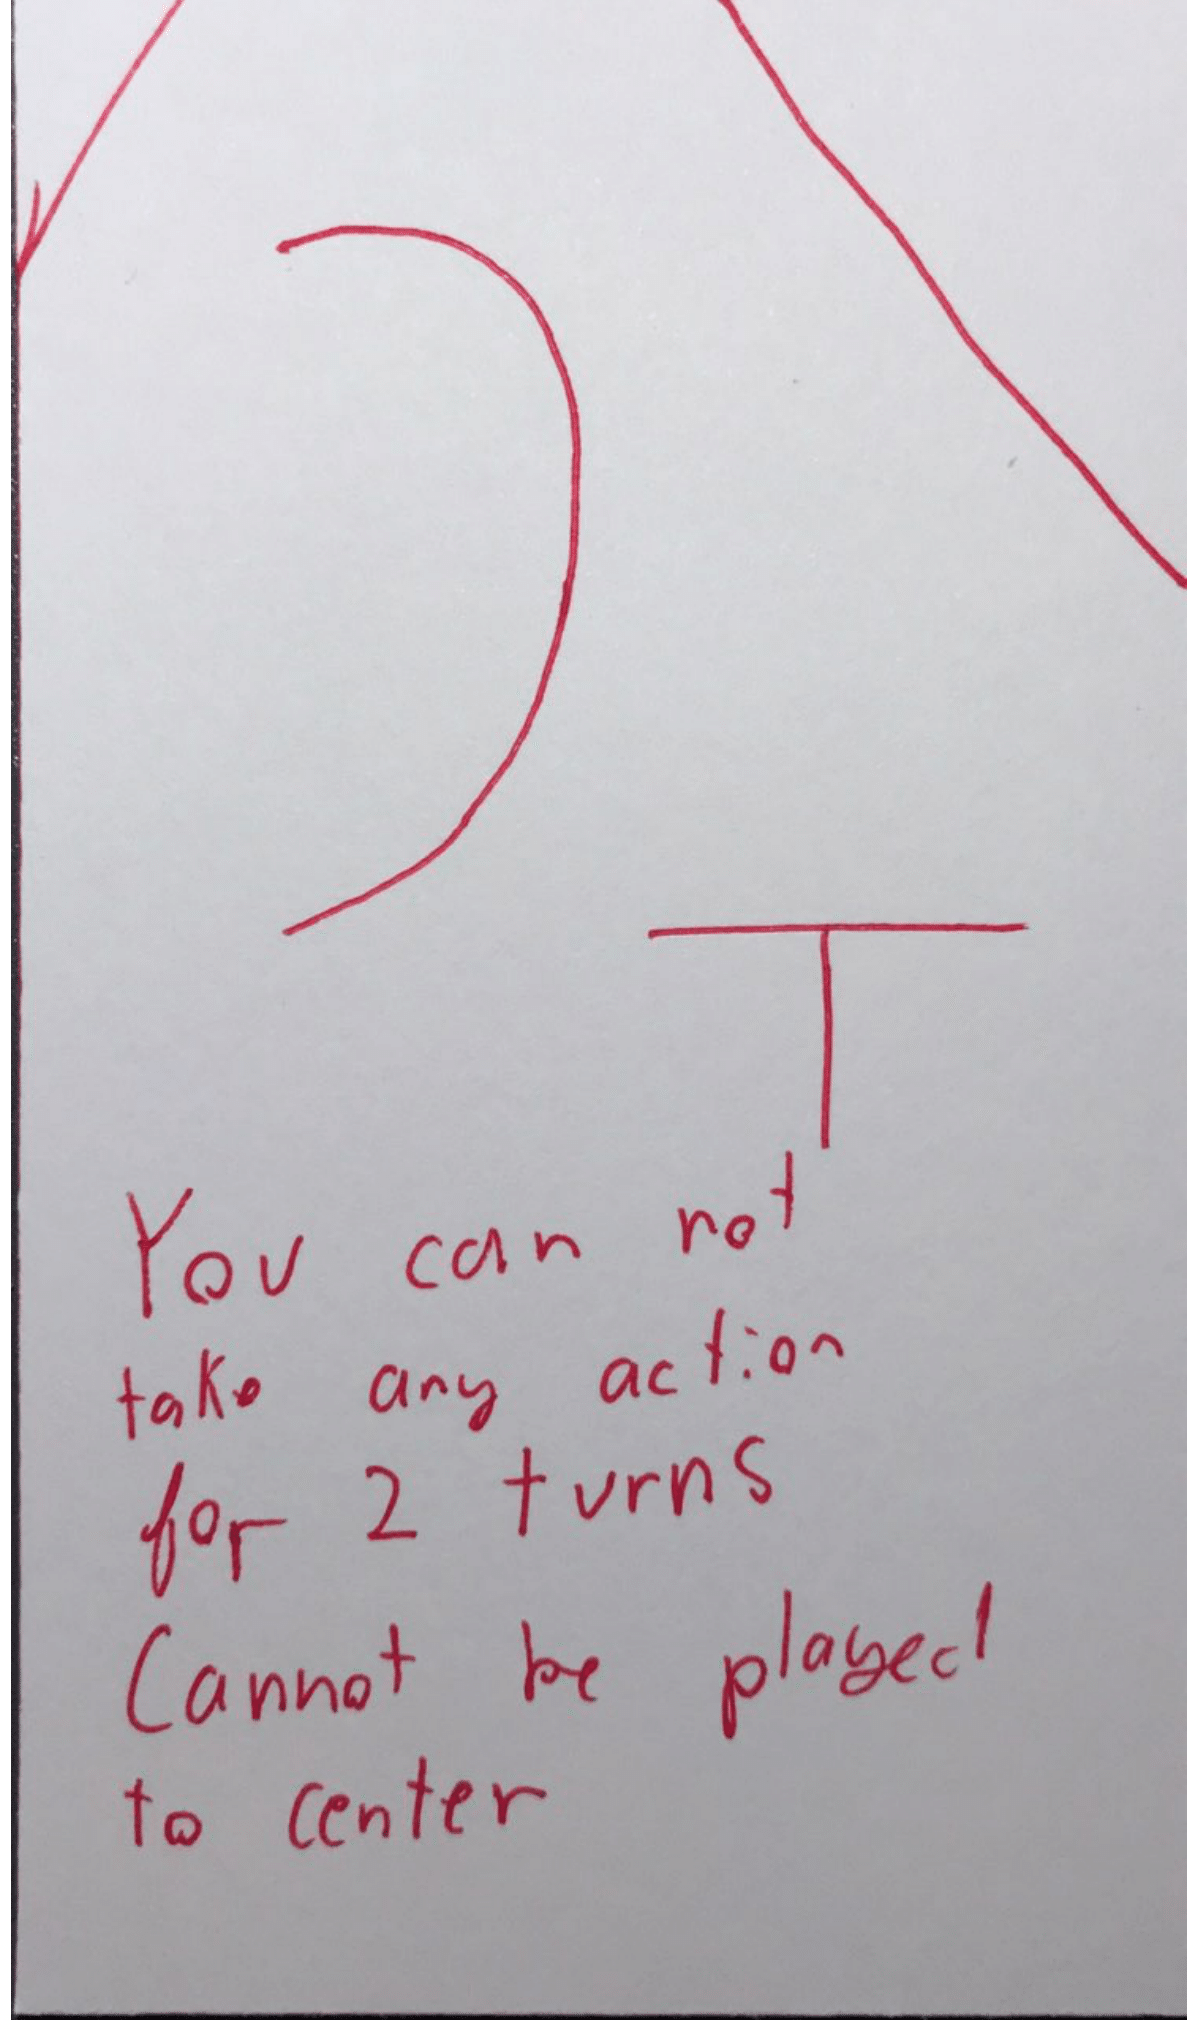 You can not
take any action
for 2 turns
Cannot be played
to center